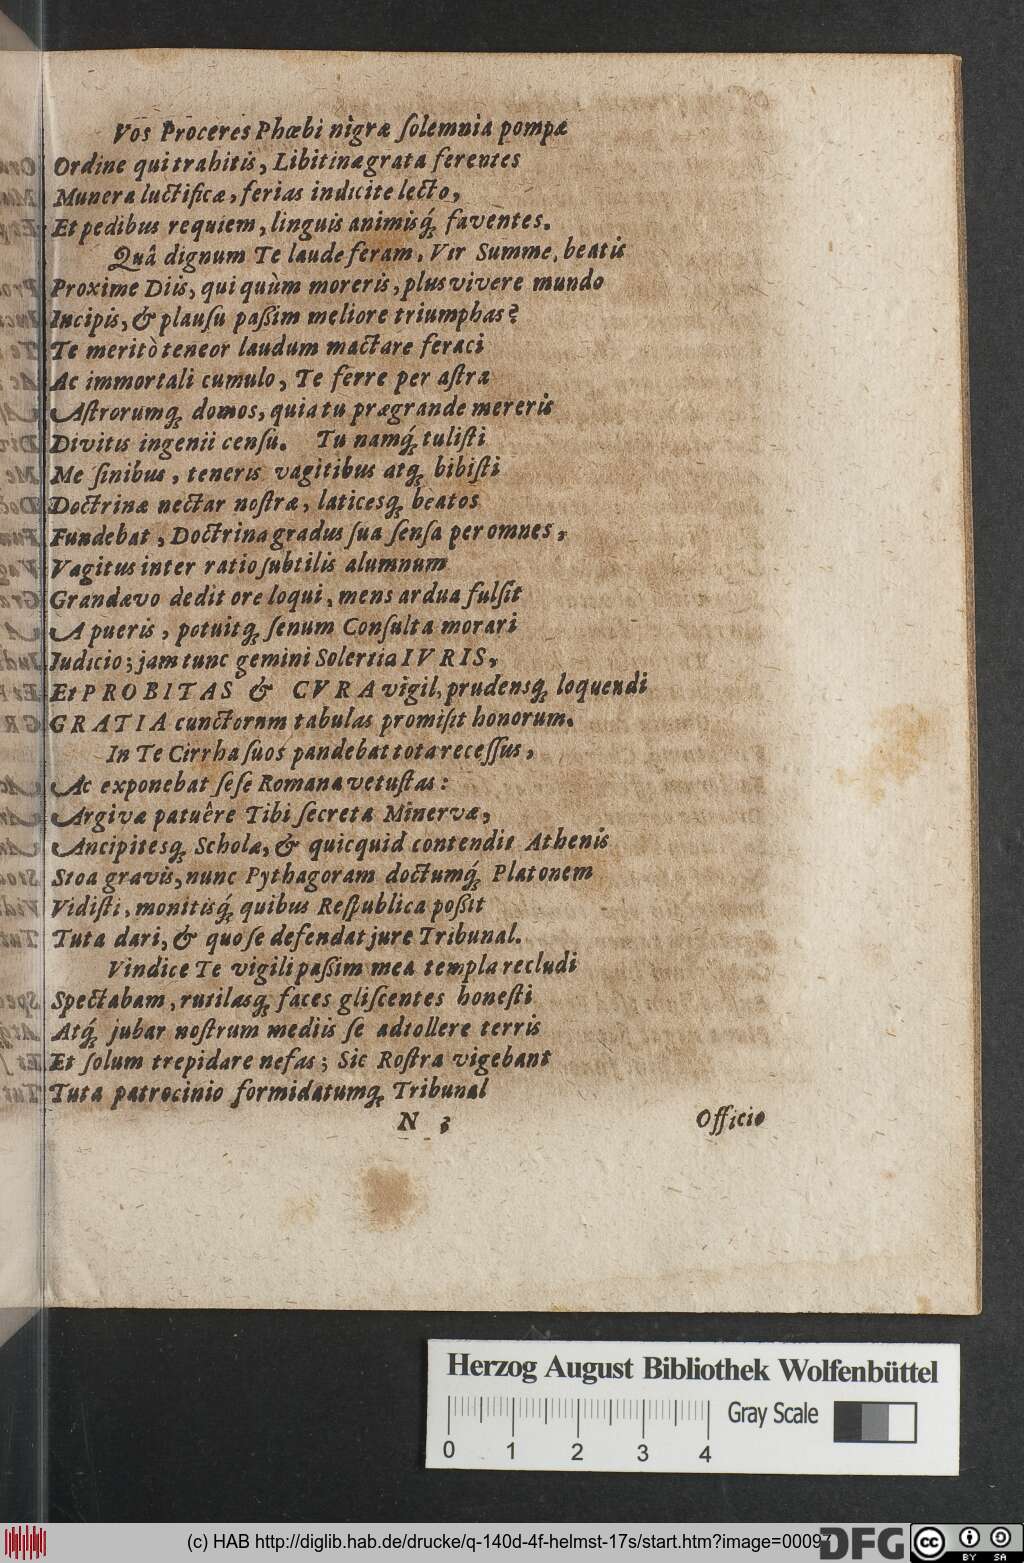 Vos Proceres Phœbi nigræ ſolemnia pompæ
Ordine qui trahitis, Libitinæ grata ferentes
Munera luctificæ, ferias indicite lecto,
Et pedibus requiem, linguis animisq́; faventes.
Quâ dignum Te laude feram, Vir Summe, beatis
Proxime Diis, qui quùm moreris, plus vivere mundo
Incipis, & plauſu paßim meliore triumphas?
Te meritò teneor laudum mactare feraci
Ac immortali cumulo, Te ferre per aſtra
Aſtrorumq; domos, quia tu prægrande mereris
Divitis ingenii cenſu. Tu namq́; tuliſti
Me ſinibus, teneris vagitibus atq; bibiſti
Doctrinæ nectar noſtræ, laticesq; beatos
Fundebat, Doctrina gradus ſua ſenſa per omnes,
Vagitus inter ratio ſubtilis alumnum
Grandævo dedit ore loqui, mens ardua fulſit
A pueris, potuitq; ſenum Conſulta morari
Iudicio; jam tunc gemini Solertia IVRIS,
Et PROBITAS & CVRA vigil, prudensq; loquendi
GRATIA cunctorum tabulas promiſit honorum.
In Te Cirrha ſuos pandebat tota receſſus,
Ac exponebat ſeſe Romana vetuſtas:
Argivæ patuêre Tibi ſecreta Minervæ,
Ancipitesq; Scholæ, & quicquid contendit Athenis
Stoa gravis, nunc Pythagoram doctumq́; Platonem
Vidiſti, monitisq́; quibus Reſpublica poßit
Tuta dari, & quo ſe defendat jure Tribunal.
Vindice Te vigili paßim mea templa recludi
Spectabam, rutilasq; faces gliſcentes honeſti
Atq́; jubar noſtrum mediis ſe adtollere terris
Et ſolum trepidare nefas; Sic Roſtra vigebant
Tuta patrocinio formidatumq; Tribunal
N 3 Officio
Herzog August Bibliothek Wolfenbüttel
Gray Scale
0 1 2 3 4
(c) HAB http://diglib.hab.de/drucke/q-140d-4f-helmst-17s/start.htm?image=00097
DFG
cc BY SA